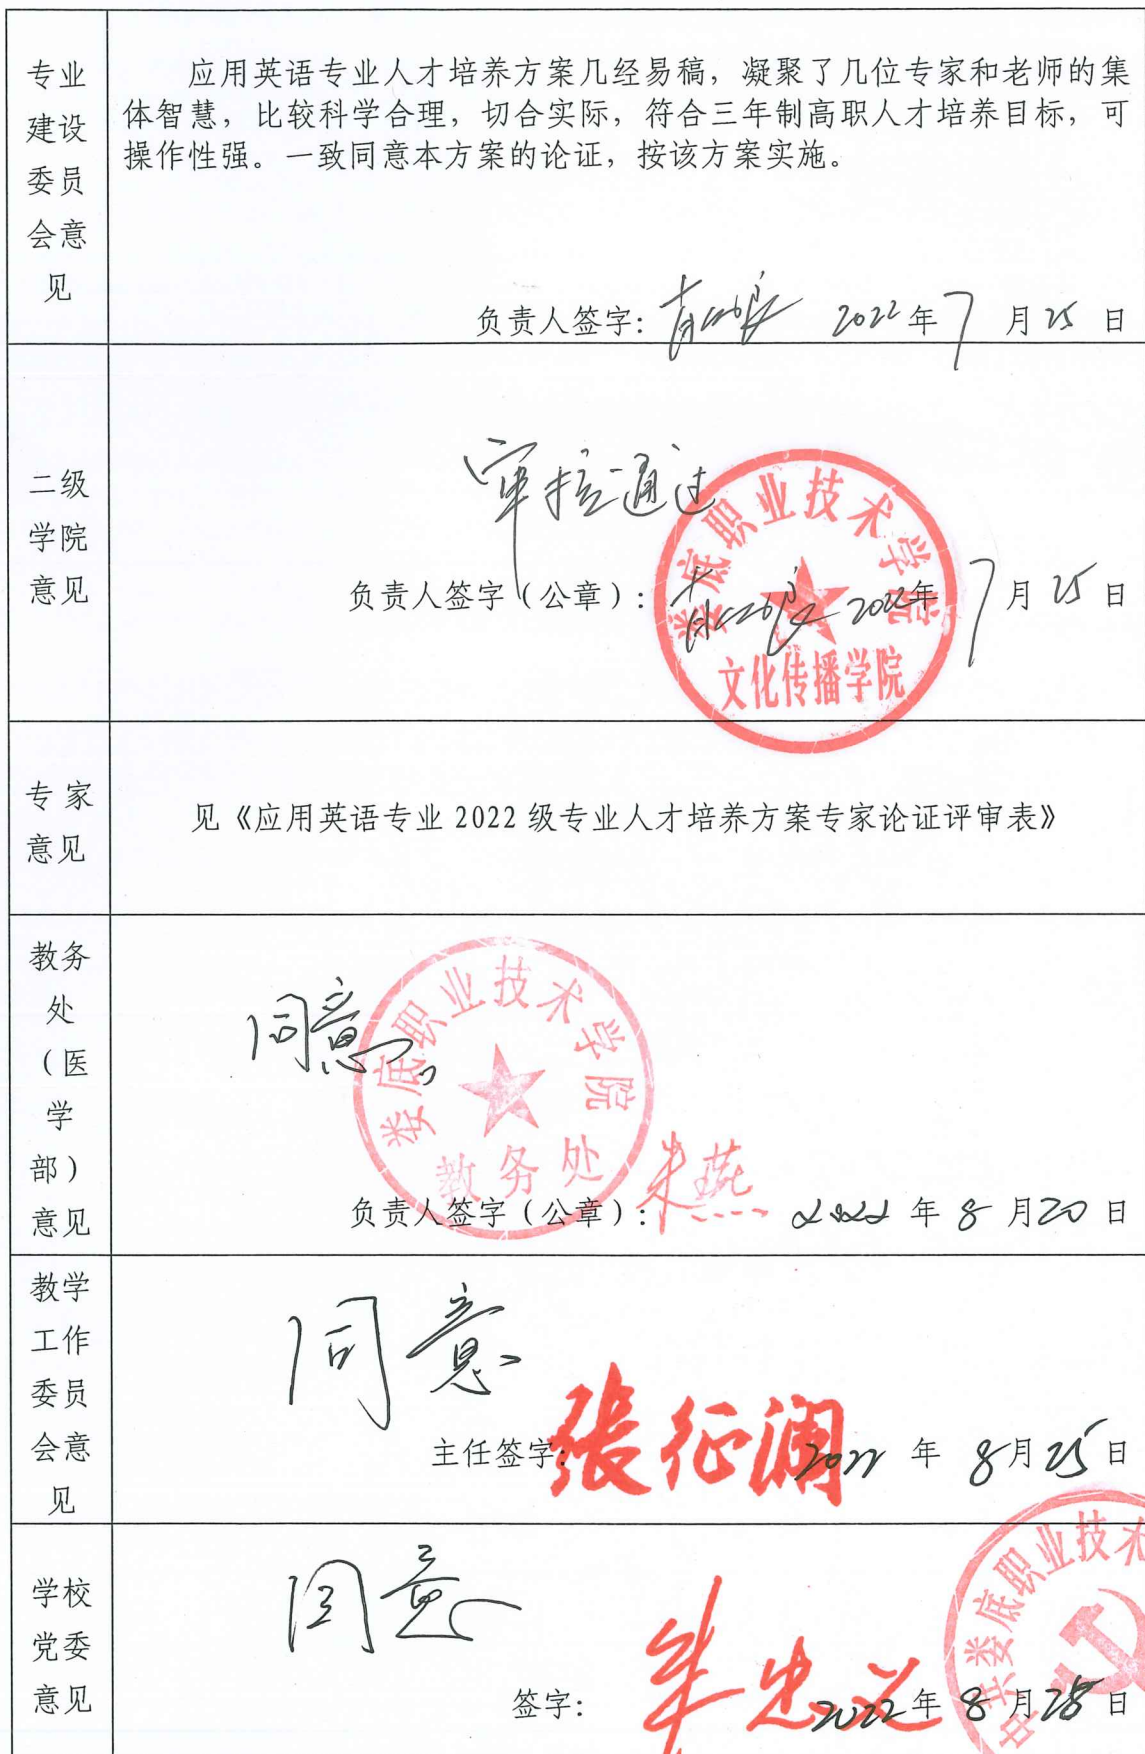 专业
建设
委员
会意
见
应用英语专业人才培养方案几经易稿，凝聚了几位专家和老师的集
体智慧，比较科学合理，切合实际，符合三年制高职人才培养目标，可
操作性强。一致同意本方案的论证，按该方案实施。
负责人签字： 2022年7月25日
二级
学院
意见
审核通过
负责人签字（公章）： 2022年7月25日
娄底职业技术学院
文化传播学院
专家
意见
见《应用英语专业 2022 级专业人才培养方案专家论证评审表》
教务
处
（医
学
部）
意见
同意
娄底职业技术学院
教务处
负责人签字（公章）：朱燕 2022年8月20日
教学
工作
委员
会意
见
同意
主任签字：張征澜 2022年8月25日
学校
党委
意见
同意
中共娄底职业技术
签字： 2022年8月28日